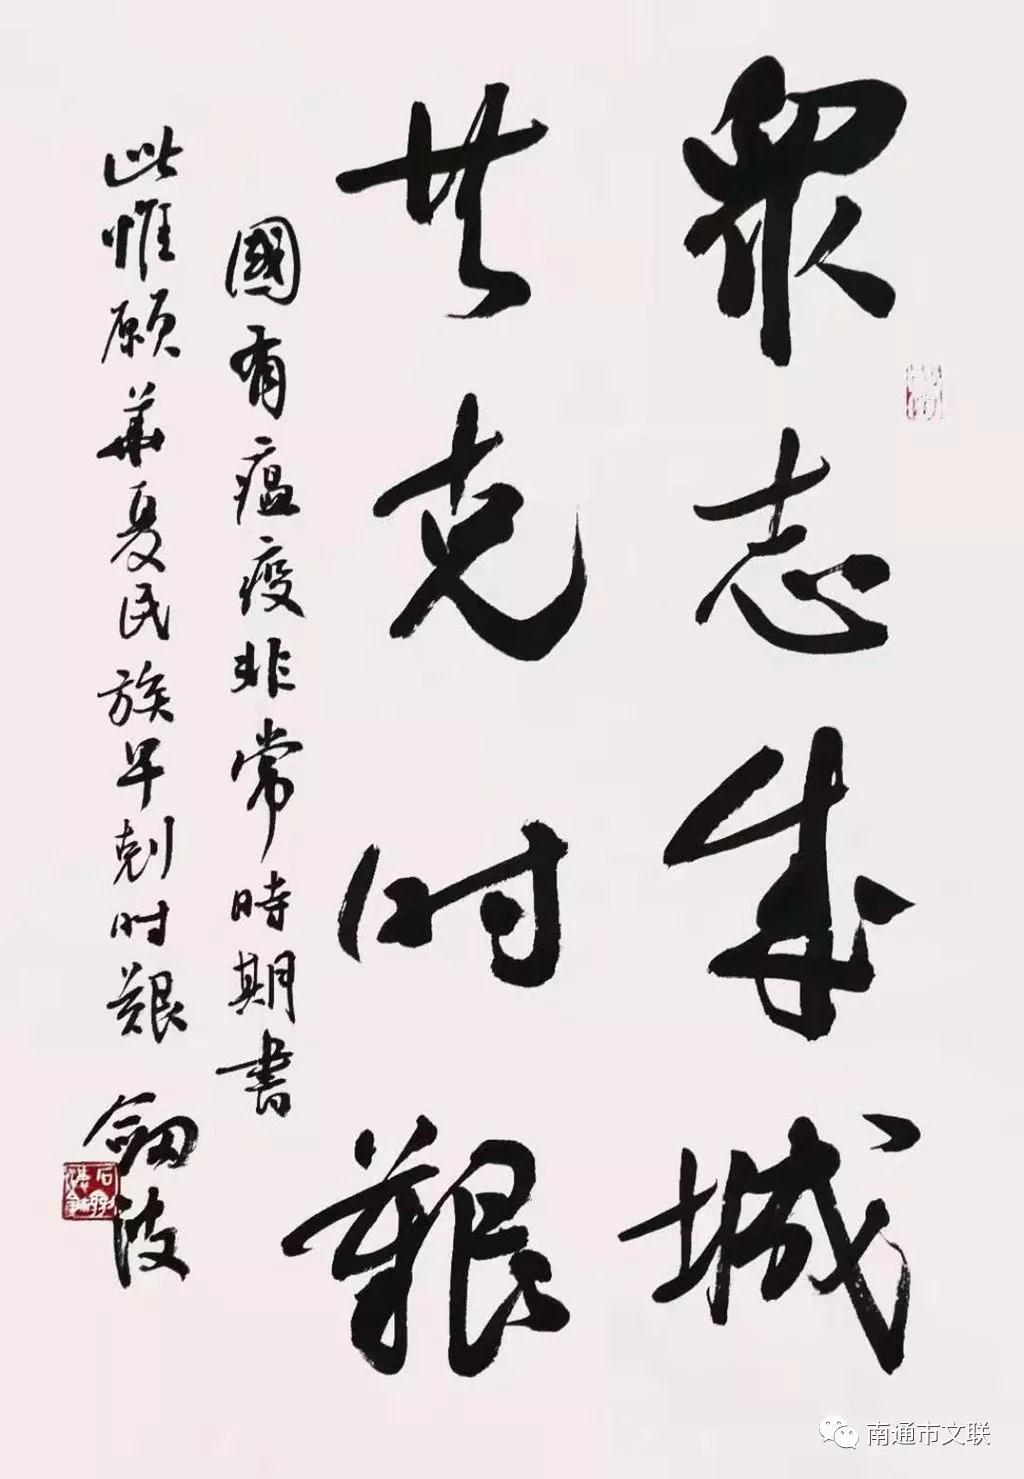 眾志成城
共克时艱
國有瘟疫非常時期書
此惟願華夏民族早剋时艱
劍波
南通市文联